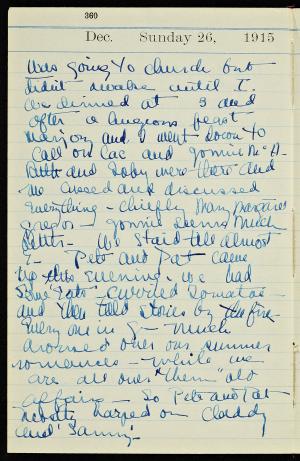 360
Dec. Sunday 26, 1915
Was going to church but
didn't awake until 1.
We dinned at 3 and
after a luxurious feast
Marjory and I went down to
call on Cac and
Ruth and Baby were there and
we cussed and discussed
everything - chiefly Mary Margaret
seems much
better - We staid till almost
7 - Pete and Pat came
up this evening. We had
some "eats" - curried tomatoes -
and then told stories by the fire -
Every one in 5 - much
aroused over our summer
romances - while we
are all over "them" old
affairs - So Pete and Pat
harped on Claddy
and Sammy -